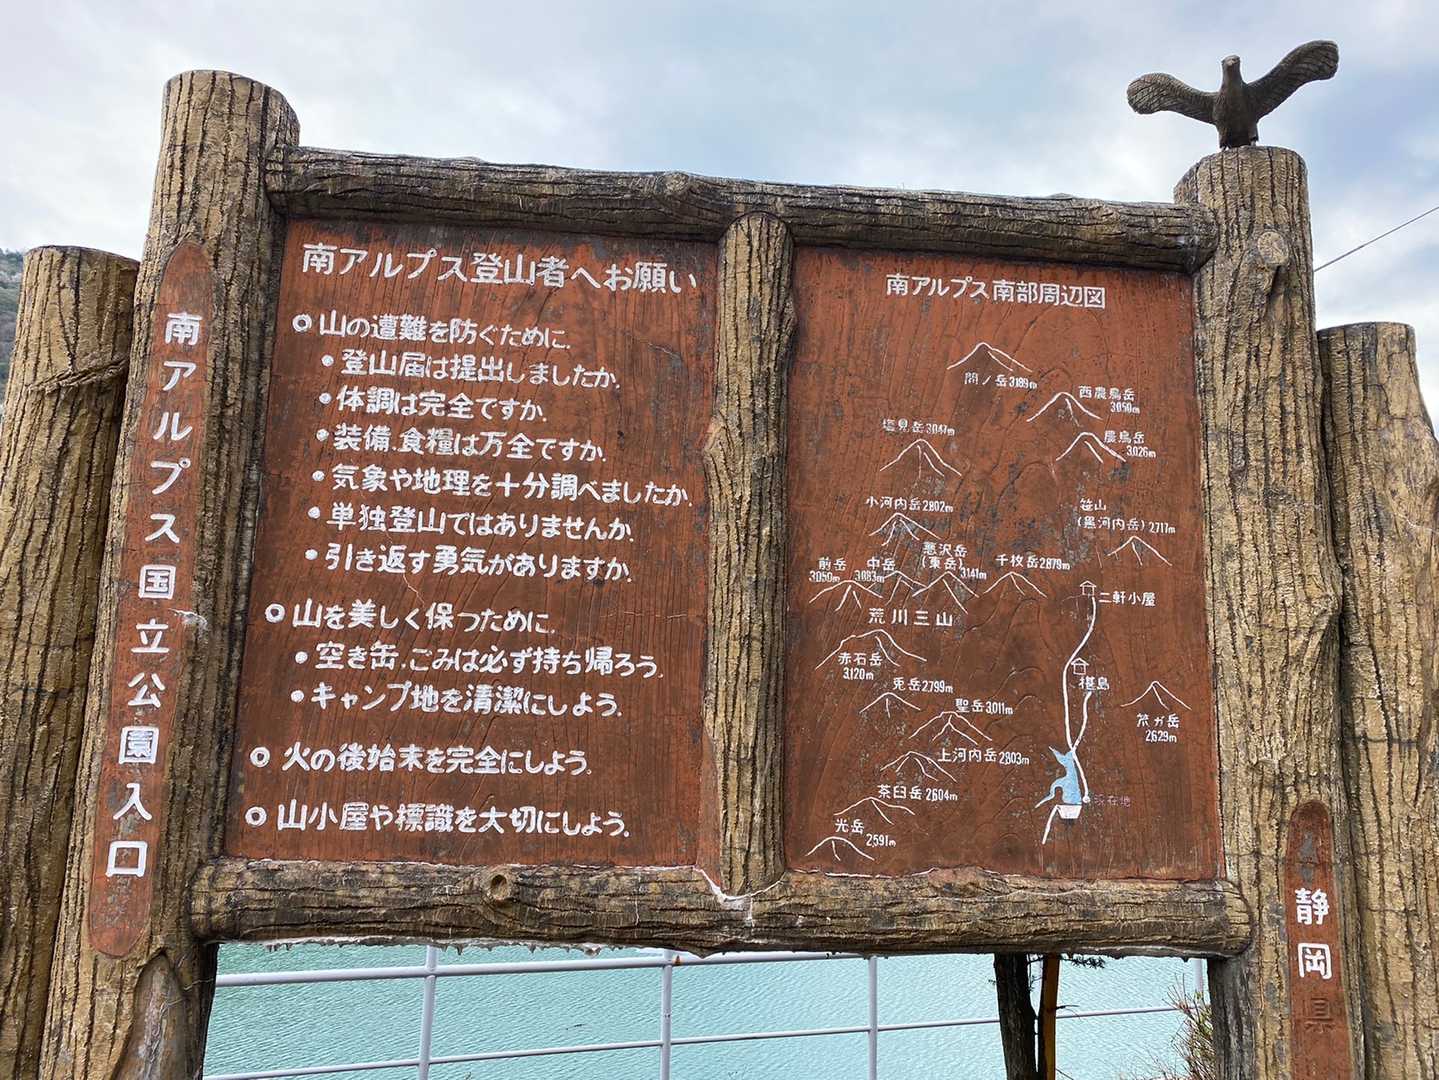 南アルプス国立公園入口
南アルプス登山者へお願い
山の遭難を防ぐために.
・登山届は提出しましたか.
・体調は完全ですか.
・装備.食糧は万全ですか.
・気象や地理を十分調べましたか.
・単独登山ではありませんか.
・引き返す勇気がありますか.
山を美しく保つために.
・空き缶.ごみは必ず持ち帰ろう.
・キャンプ地を清潔にしよう.
火の後始末を完全にしよう.
山小屋や標識を大切にしよう.
南アルプス南部周辺図
間ノ岳3189m
西農鳥岳
3050m
塩見岳3,047m
農鳥岳
3,026m
小河内岳2802m
笹山
(黒河内岳)2717m
悪沢岳
(東岳)3,141m
千枚岳2879m
前岳
中岳
3,083m
荒川三山
二軒小屋
赤石岳
3,120m
椹島
兎岳2,799m
聖岳3,011m
笊ヶ岳
2,629m
上河内岳2,803m
茶臼岳2,604m
現在地
光岳
2,591m
静岡県